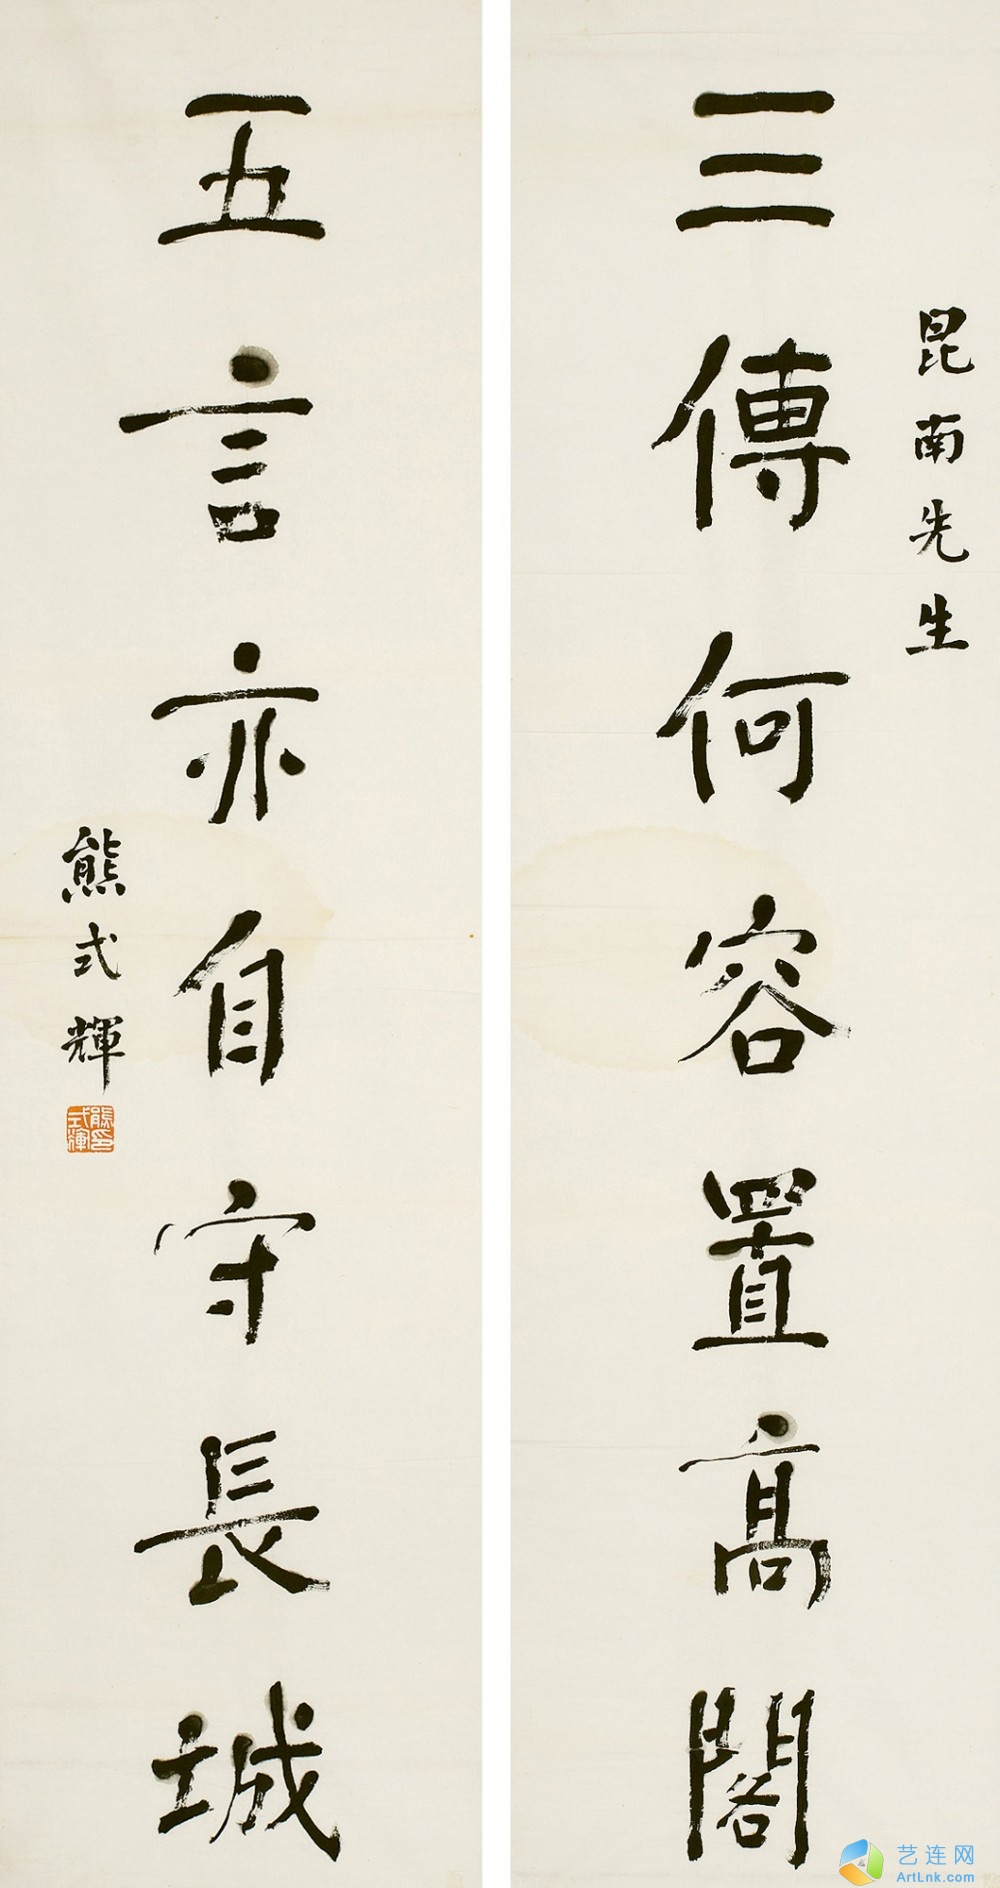 昆南先生
三傳何容置高閣
五言亦自守長城
熊式輝
熊印式輝
艺连网
ArtLnk.com